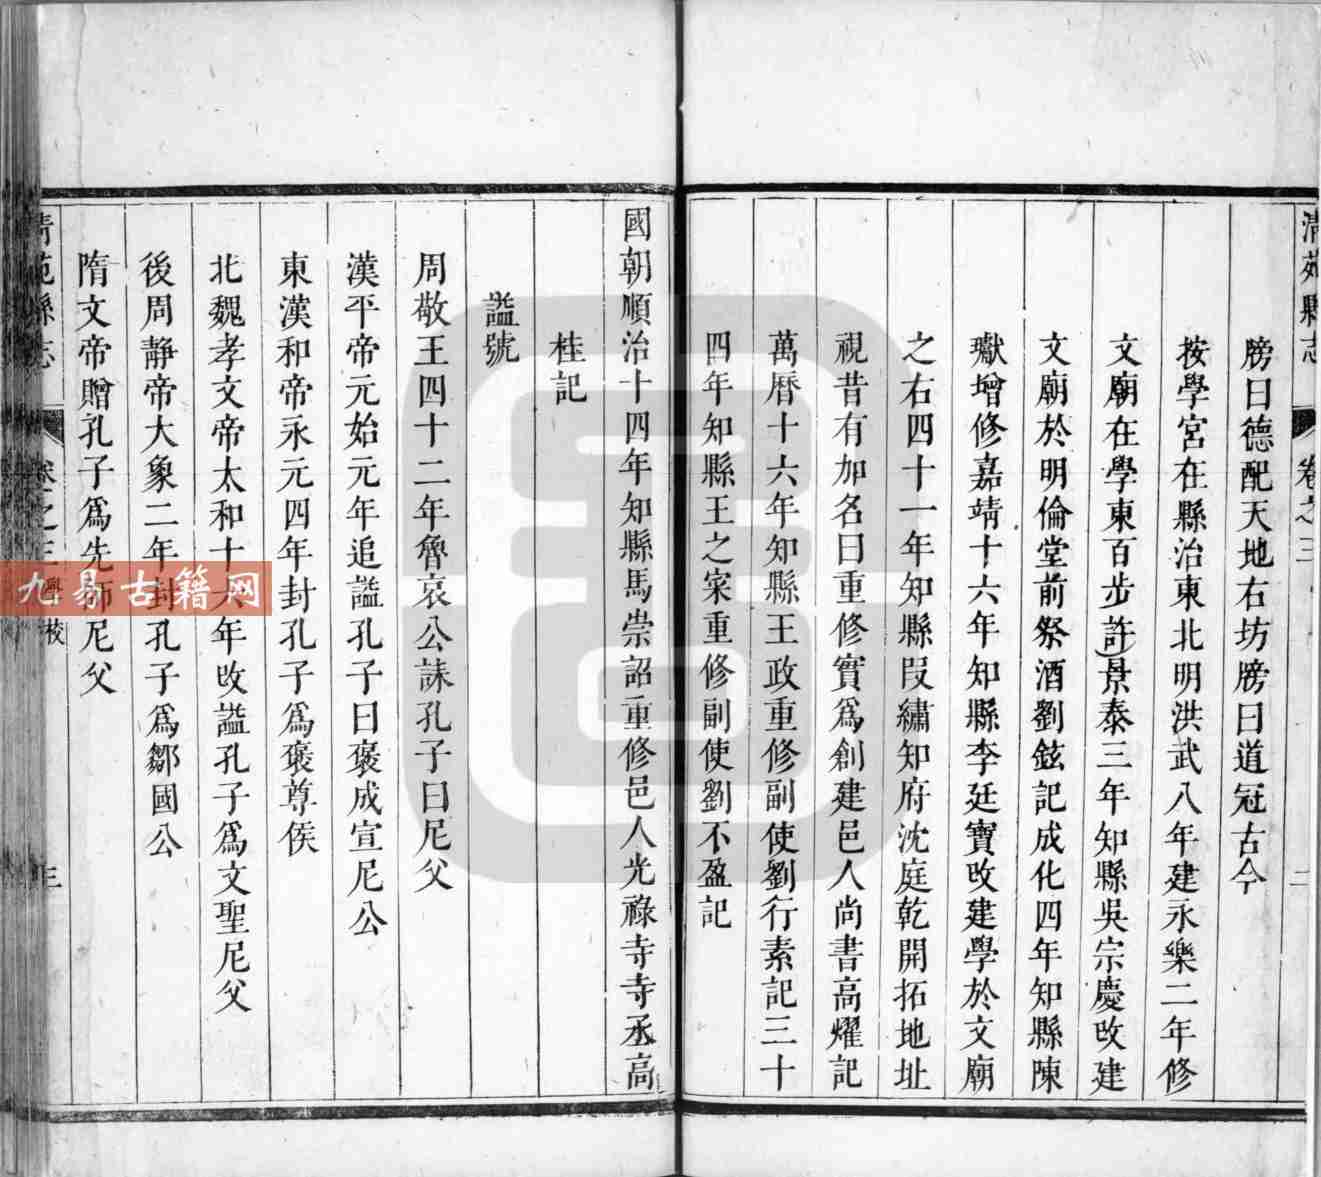 清苑縣志 卷之三 二
牓曰德配天地右坊牓曰道冠古今
按學宮在縣治東北明洪武八年建永樂二年修
文廟在學東百步許景泰三年知縣吳宗慶改建
文廟於明倫堂前祭酒劉鉉記成化四年知縣陳
瓛增修嘉靖十六年知縣李廷寶改建學於文廟
之右四十一年知縣段繡知府沈庭乾開拓地址
視昔有加名曰重修實爲創建邑人尚書高燿記
萬曆十六年知縣王政重修副使劉行素記三十
四年知縣王之寀重修副使劉不盈記
國朝順治十四年知縣馬崇詔重修邑人光祿寺寺丞高
桂記
謚號
周敬王四十二年魯哀公誄孔子曰尼父
漢平帝元始元年追謚孔子曰褒成宣尼公
東漢和帝永元四年封孔子爲褒尊侯
北魏孝文帝太和十六年改謚孔子爲文聖尼父
後周靜帝大象二年封孔子爲鄒國公
隋文帝贈孔子爲先師尼父
清苑縣志 卷之三 學校 三
九易古籍网